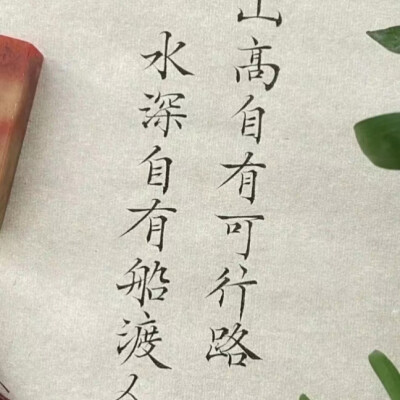 山高自有可行路
水深自有船渡人